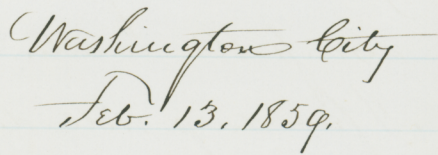 Washington City
Feb. 13. 1859.